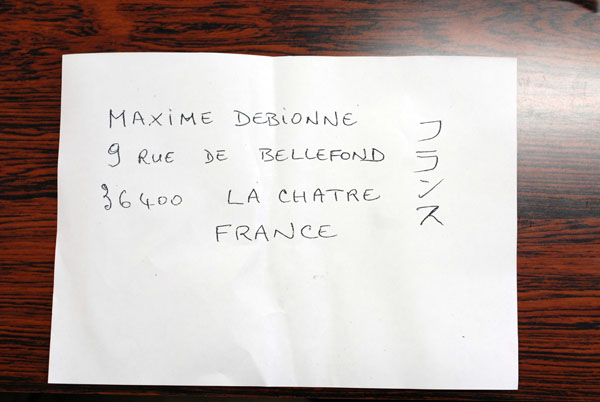 MAXIME DEBIONNE
9 RUE DE BELLEFOND
36400 LA CHATRE
FRANCE
フランス